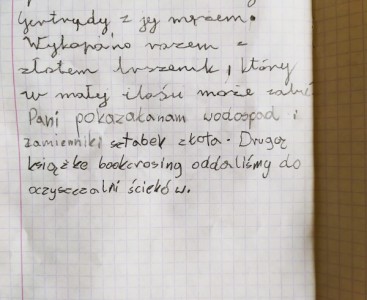 Gertrudy z jej mężem.
Wykopano razem z
złotem arszenik, który
w małej ilości może zabić
Pani pokazała nam wodospad i
zamienniki sztabek złota. Drugą
książkę bookcrosing oddaliśmy do
oczyszczalni ścieków.